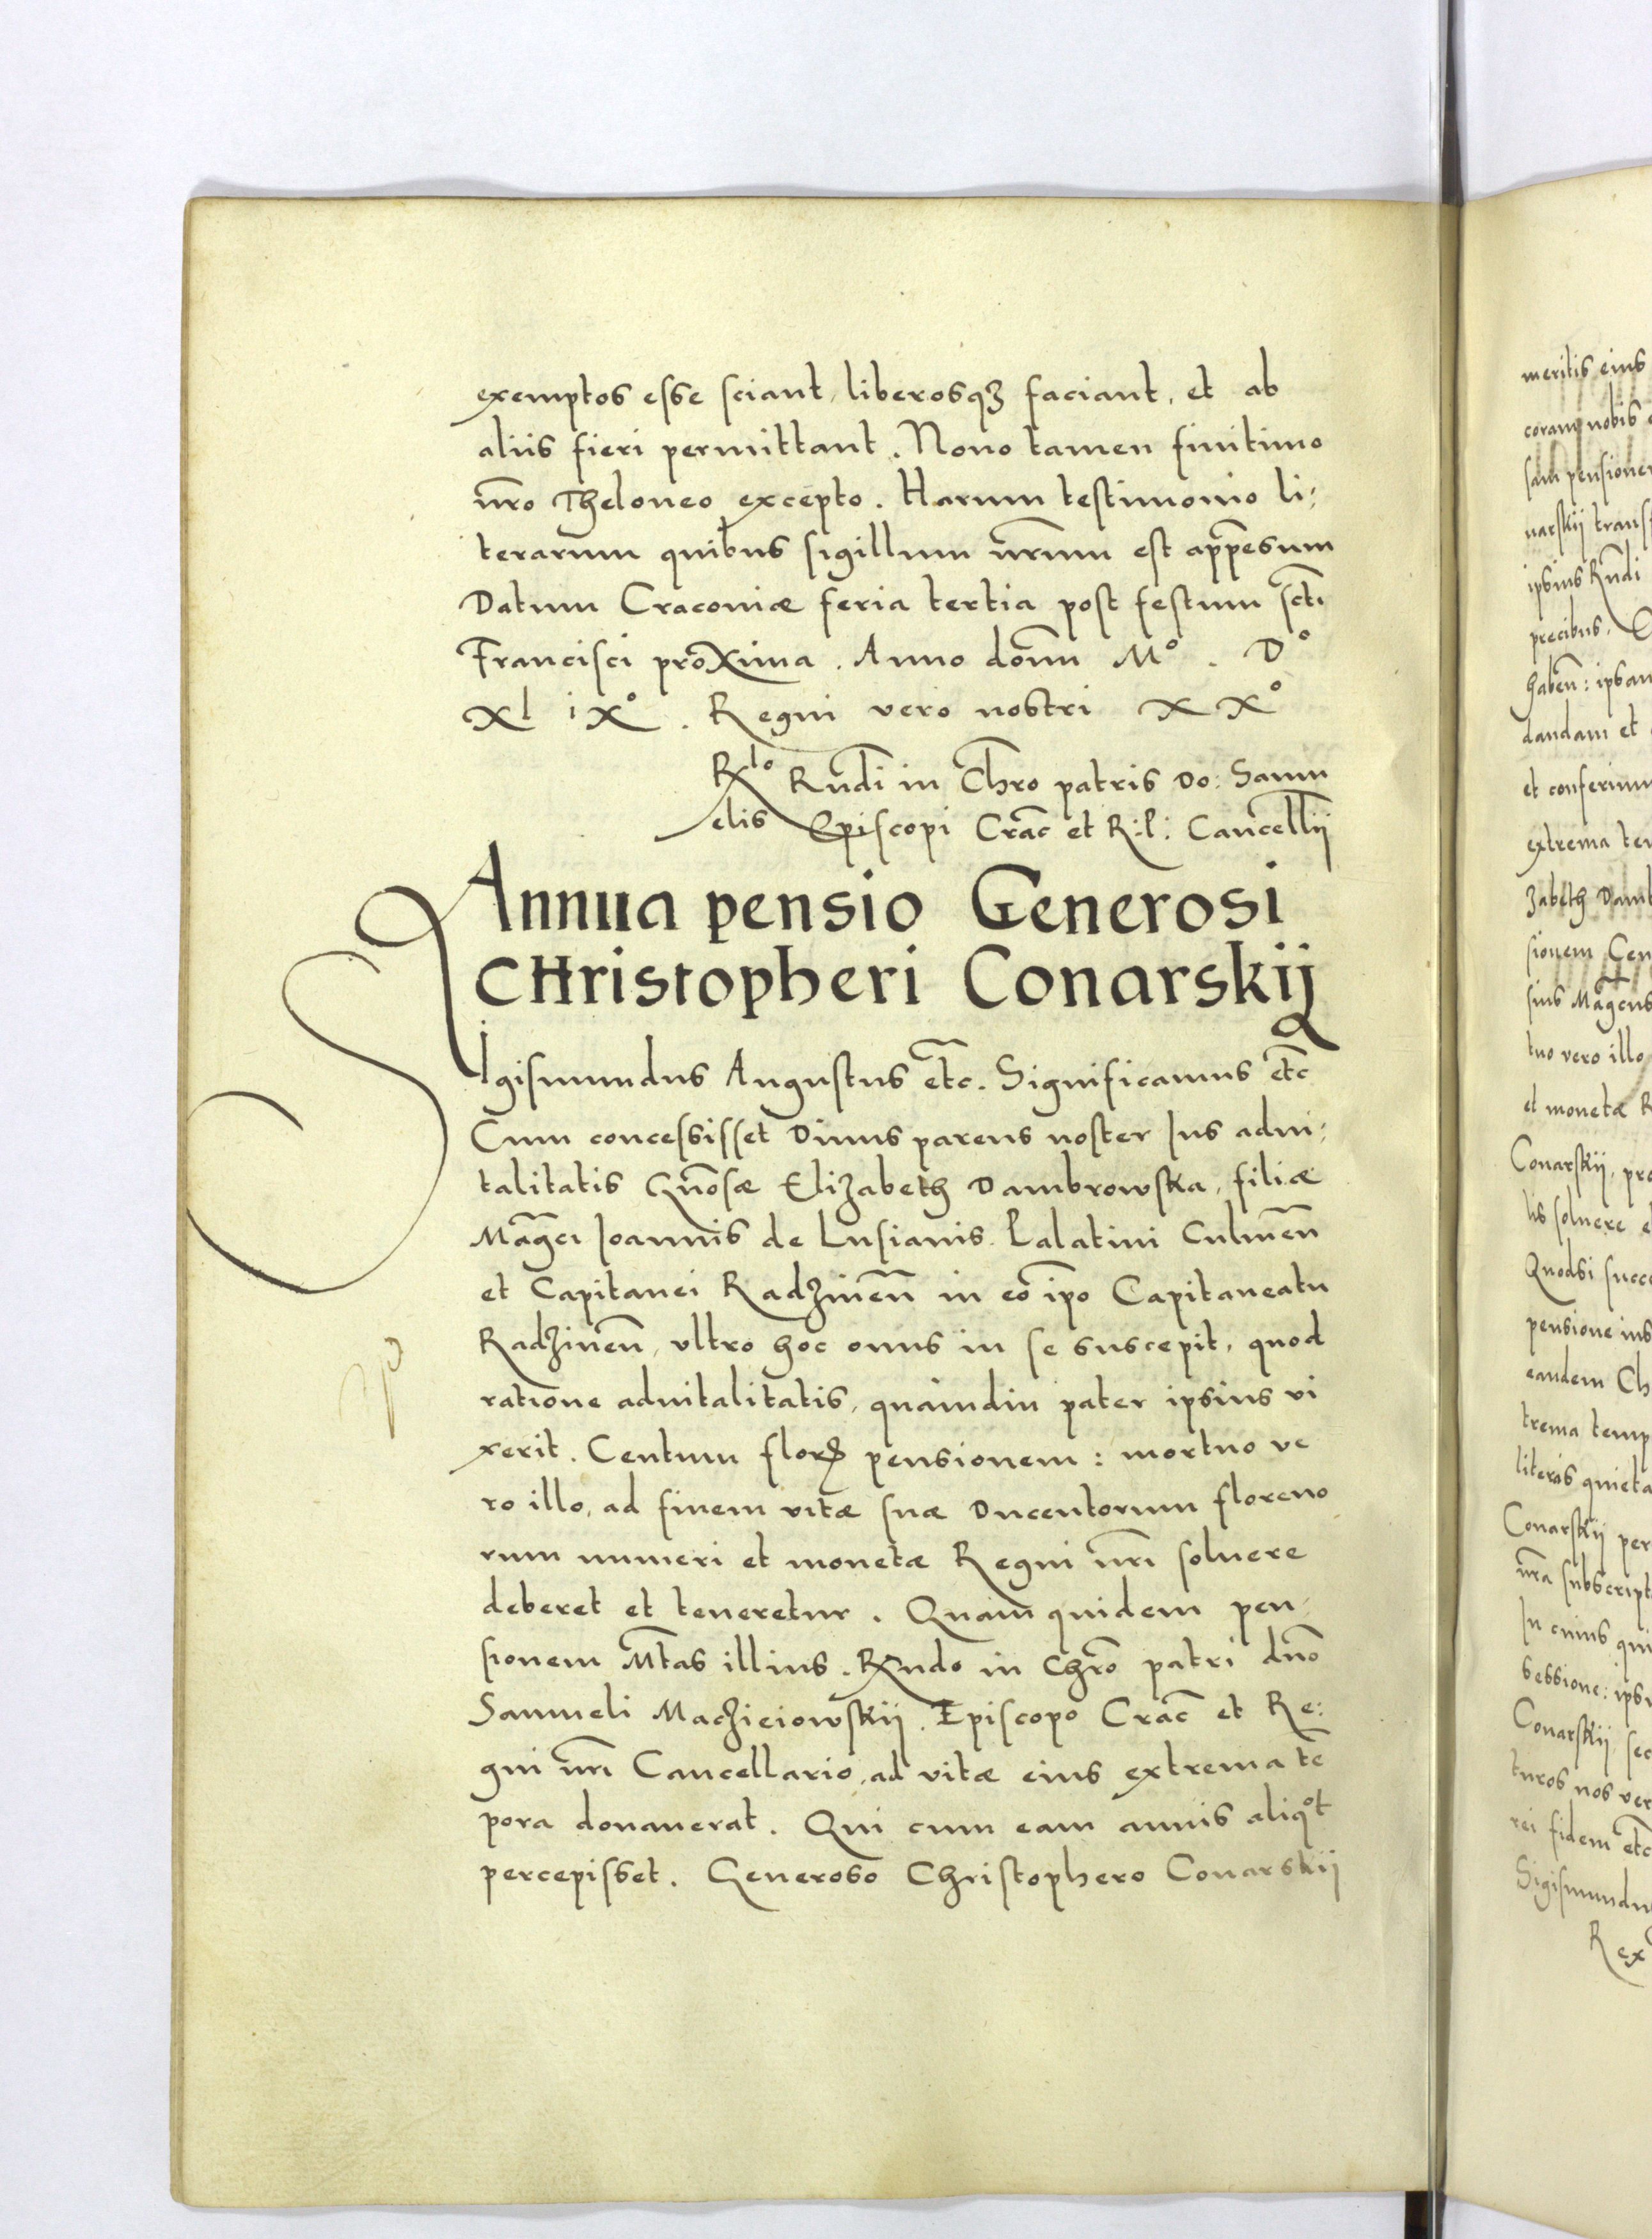 exemptos esse sciant, liberosqȝ faciant, et ab
aliis fieri permittant. Nono tamen finitimo
nr̃o Theloneo excepto. Harum testimonio li:
terarum quibus sigillum nr̃um est appẽsum
Datum Cracoviæ feria tertia post festum sct̃i
Francisci proxima. Anno domñ Mº. Dº
Xl iXº. Regni vero nostri XXº
Rlo Rñdi in Chr̃o patris Do: Samu
elis Episcopi Crac̃ et R:P: Cancellĩj
Annua pensio Generosi
CHristopheri Conarskij
Sigismundus Augustus etc̃. Significamus etc̃
Cum concessisset Divus parens noster Ius advi:
talitatis Gñosæ Elizabeth Dambrowska, filiæ
Mãgci Joannis de Lusianis Palatini Culmeñ
et Capitanei Radzineñ in eo ip̃o Capitaneatu
Radzineñ, ultro hoc onus in se suscepit, quod
ratione advitalitatis, quamdiu pater ipsius vi
xerit. Centum floRꝫ pensionem: mortuo ve
ro illo, ad finem vitæ suæ Ducentorum floreno
rum numeri et monetæ Regni nr̃i solvere
deberet et teneretur. Quam quidem pen
sionem Mt̃as illius. Rxñdo in Chr̃o patri dño
Samueli Maczieiowskij. Episcopo Crac̃ et Re:
gni nr̃i Cancellario, ad vitæ eius extrema tẽ
pora donaverat. Qui cum eam annis aliqºt
percepisset. Generoso Christophero Conarskij
meritis eius
coram nobis
sam pensionem
narskij transf
ipsius Rñdi
precibus.
habeñ: ipsam
dandam et
et conferimus
extrema tem
zabeth Damb
sionem Cen
sius Mãgcus
tuo vero illo
et monetæ R
Conarskij, pro
lis solvere e
Quodsi succe
pensione ius
eandem Ch
trema temp
literis quieta
Conarskij per
nr̃a subscript
In cuius qui
sessione: ipsu
Conarskij sec
turos nos ver
rei fidem etc̃
Sigismundu
Rex